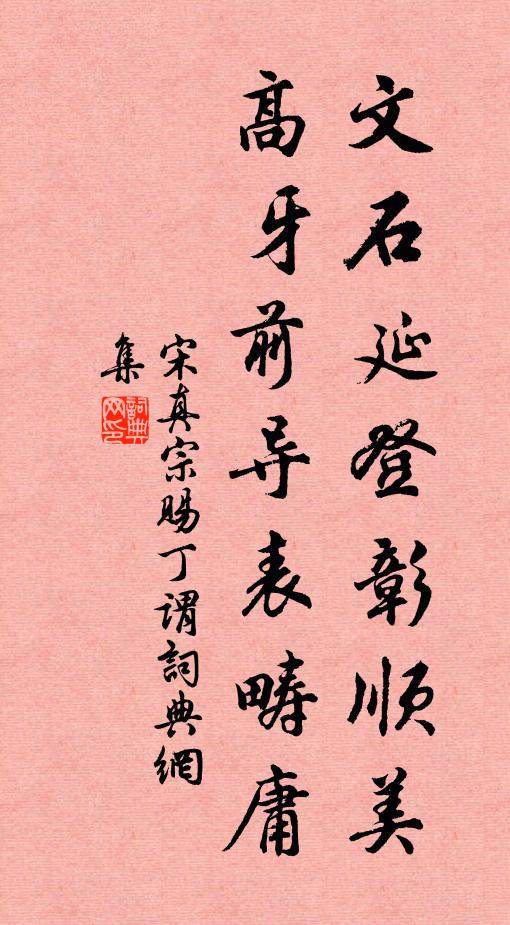 文石延登彰顺美
高牙前导表畴庸
宋真宗賜丁谓詞典網
集
詞典
网印